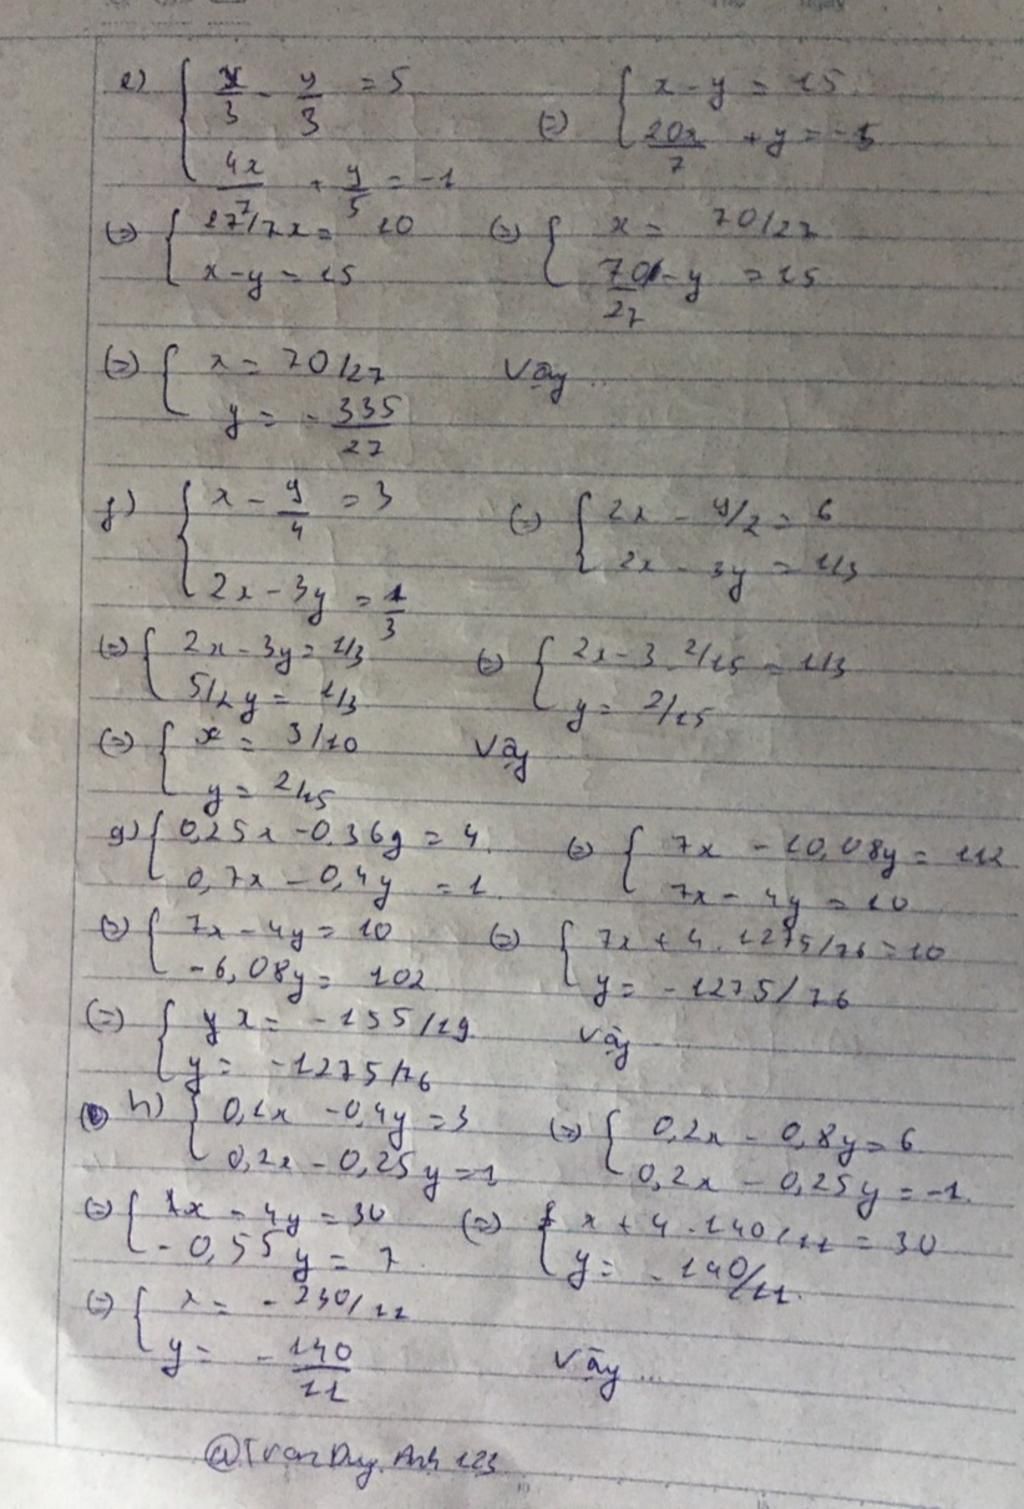 e) { x/3 - y/3 = 5
4x/7 + y/5 = -1
(=) { x - y = 15
20x/7 + y = -5
(=) { 27/7x = 10
x - y = 15
(=) { x = 70/27
70/27 - y = 15
(=) { x = 70/27
y = - 335/27
Vậy ...
f) { x - y/4 = 3
2x - 3y = 1/3
(=) { 2x - y/2 = 6
2x - 3y = 1/3
(=) { 2x - 3y = 1/3
5/2 y = 1/3
(=) { 2x - 3 . 2/15 = 1/3
y = 2/15
(=) { x = 3/10
y = 2/15
Vậy
g) { 0,25x - 0,36y = 4
0,7x - 0,4y = 1
(=) { 7x - 10,08y = 112
7x - 4y = 10
(=) { 7x - 4y = 10
-6,08y = 102
(=) { 7x + 4 . 1275/76 = 10
y = - 1275/76
(=) { y x = - 155/19
y = - 1275/76
Vậy
h) { 0,1x - 0,4y = 3
0,2x - 0,25y = 1
(=) { 0,2x - 0,8y = 6
0,2x - 0,25y = -1
(=) { 1x - 4y = 30
- 0,55y = 7
(=) { x + 4 . 140/11 = 30
y = - 140/11
(=) { x = - 230/11
y = - 140/11
Vậy ...
@Tran Duy Anh 123